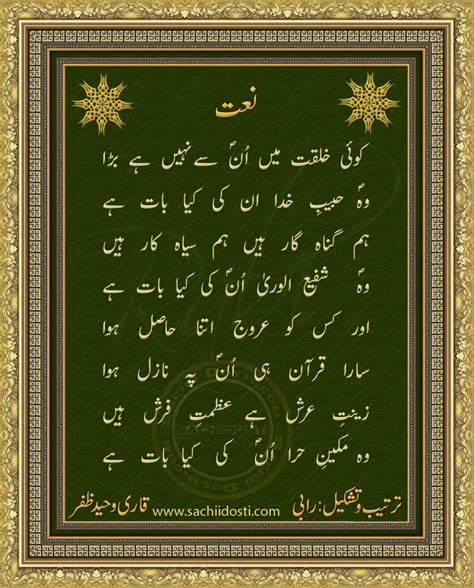 نعت
کوئی خلقت میں اُنؐ سے نہیں ہے بڑا
وہؐ حبیبِ خدا ان کی کیا بات ہے
ہم گناہ گار ہیں ہم سیاہ کار ہیں
وہؐ شفیع الوریٰ ہیں اُنؐ کی کیا بات ہے
اور کس کو عروج اتنا حاصل ہوا
سارا قرآن ہی اُنؐ پہ نازل ہوا
زینتِ عرش ہے عظمتِ فرش ہیں
وہ مکینِ حرا اُنؐ کی کیا بات ہے
ترتیب و تشکیل: رابی www.sachiidosti.com قاری وحید ظفر
SACHIIDOSTI